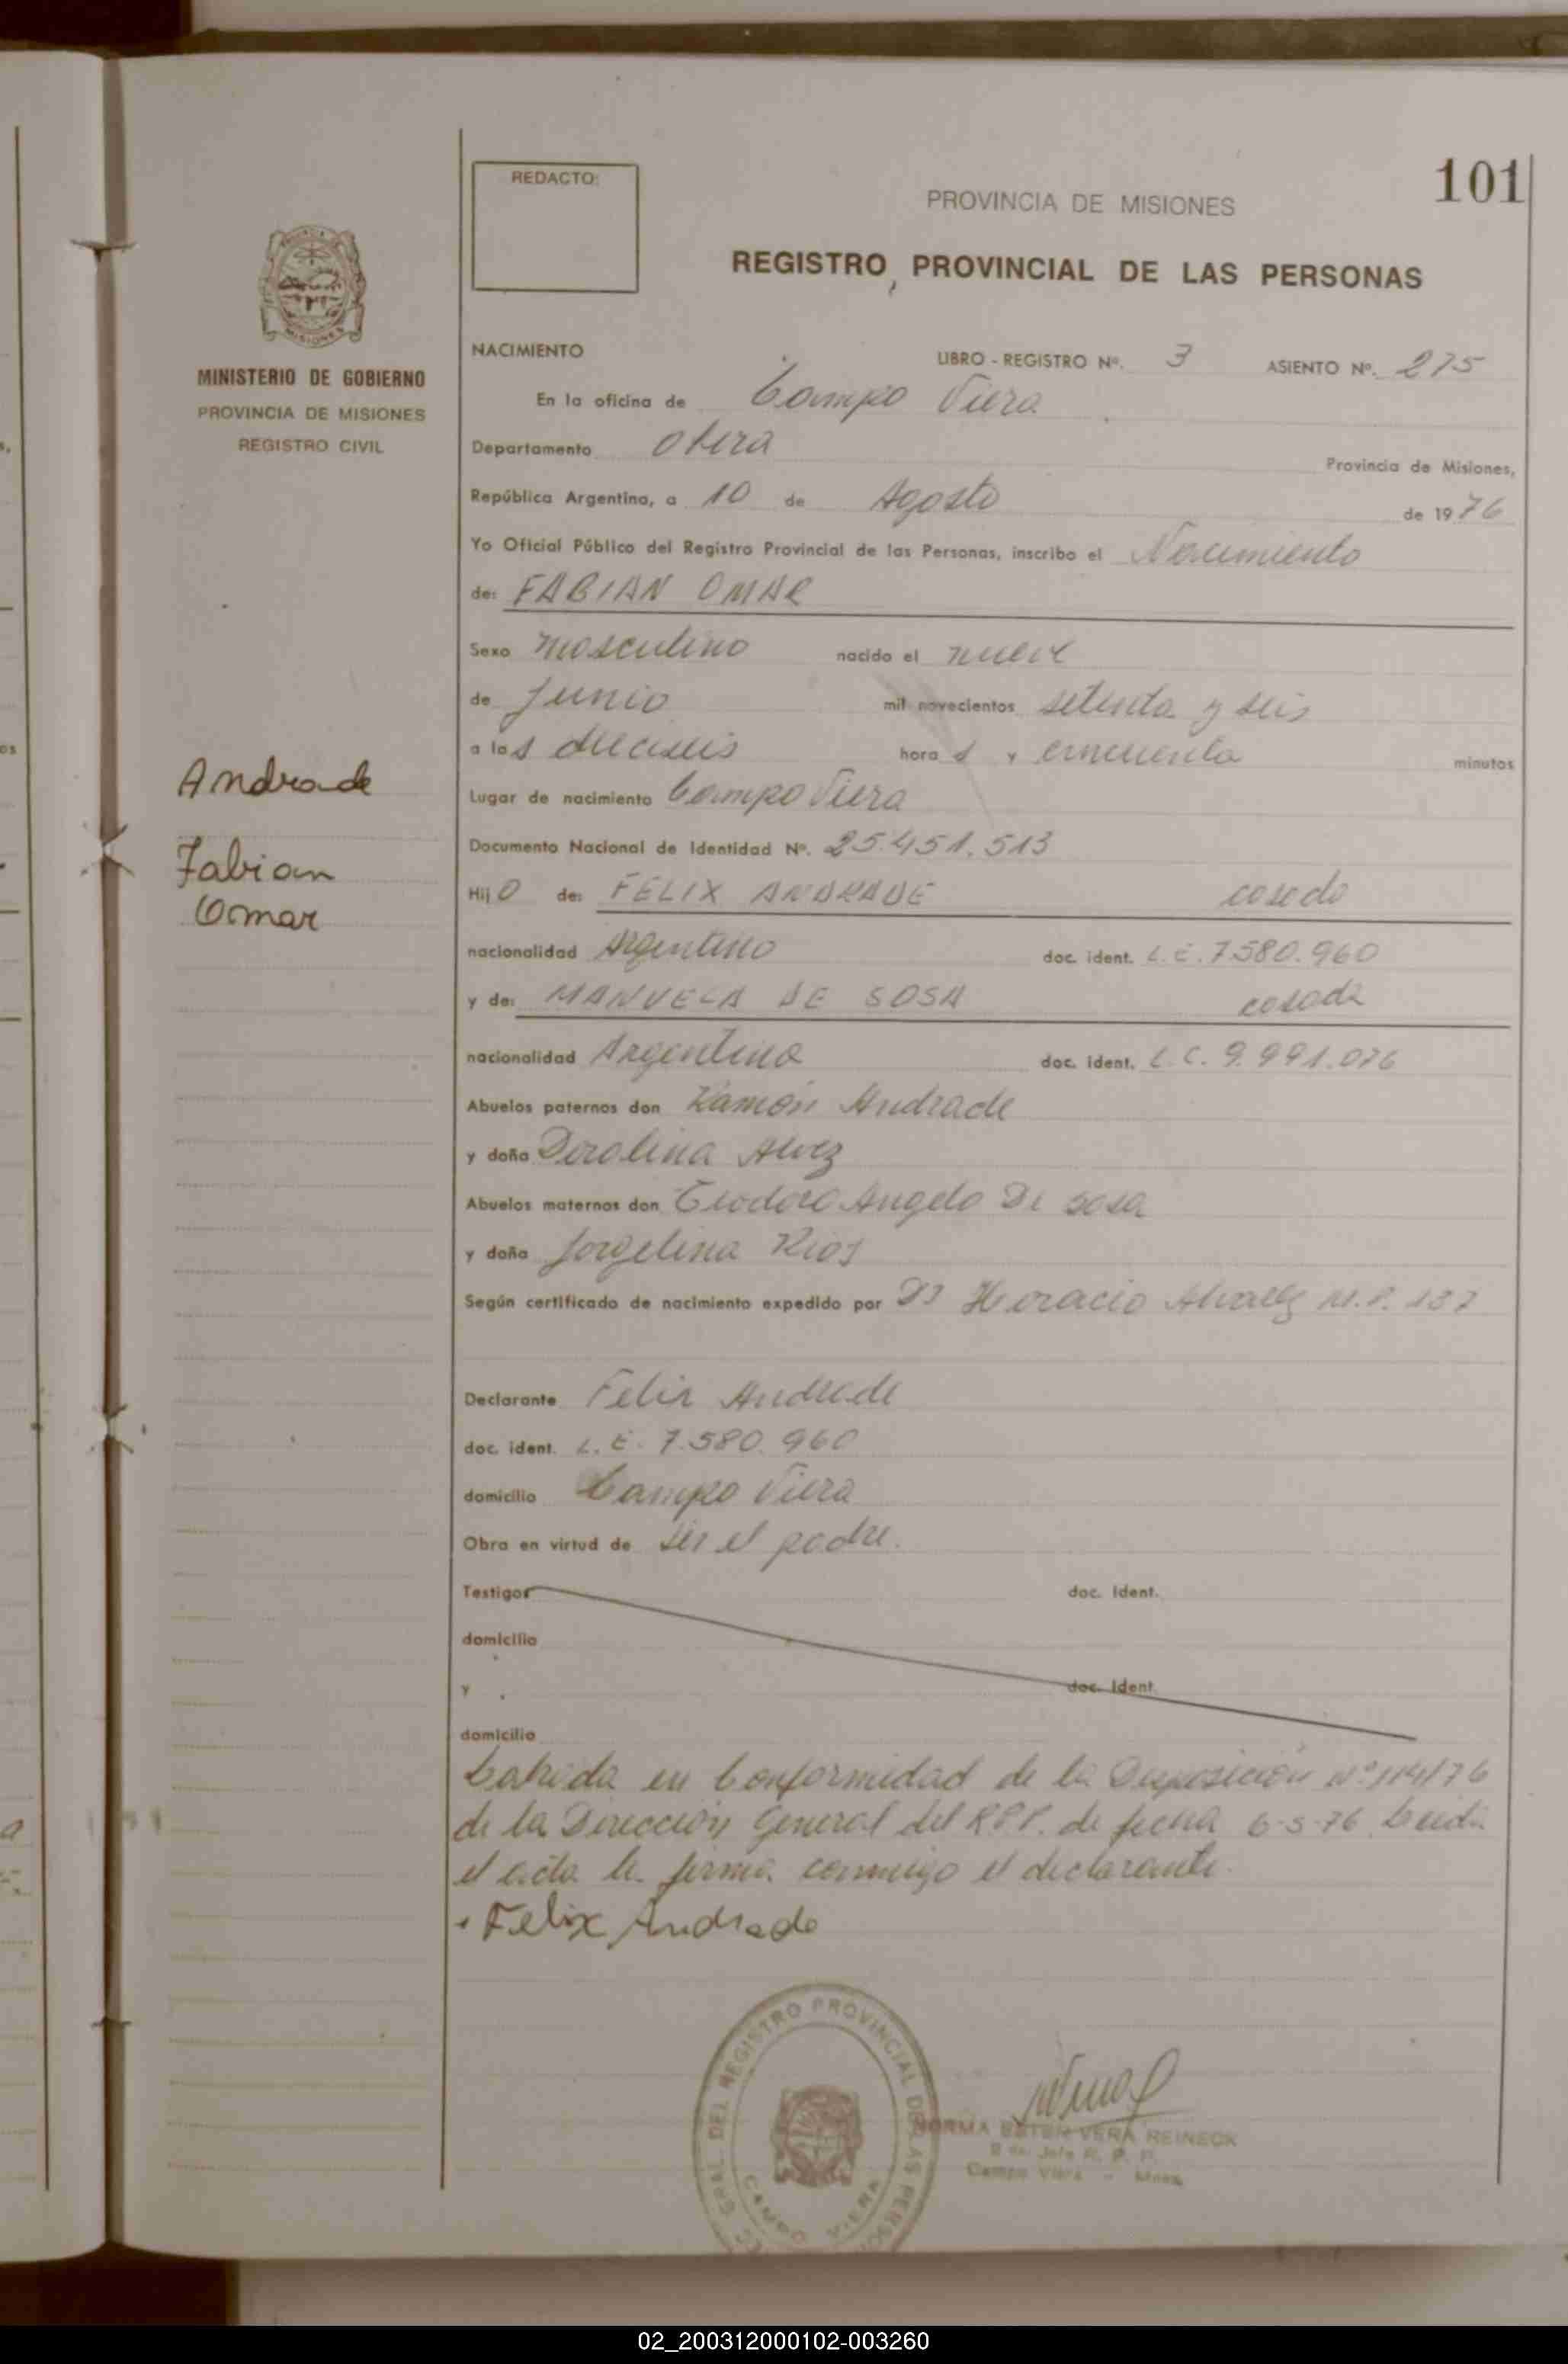 101
REDACTO:
PROVINCIA DE MISIONES
REGISTRO PROVINCIAL DE LAS PERSONAS
MISIONES
MINISTERIO DE GOBIERNO
PROVINCIA DE MISIONES
REGISTRO CIVIL
NACIMIENTO LIBRO - REGISTRO Nº. 3 ASIENTO Nº. 275
En la oficina de Campo Viera
Departamento Obera Provincia de Misiones,
República Argentina, a 10 de Agosto de 1976
Yo Oficial Público del Registro Provincial de las Personas, inscribo el Nacimiento
de: FABIAN OMAR
Sexo masculino nacido el nueve
de Junio mil novecientos setenta y seis
a las dieciseis horas y cincuenta minutos
Andrade
Fabian
Omar
Lugar de nacimiento Campo Viera
Documento Nacional de Identidad Nº. 25.451.513
Hijo de: FELIX ANDRADE casado
nacionalidad Argentino doc. ident. L.E. 7.580.960
y de: MANUELA DE SOSA casada
nacionalidad Argentina doc. ident. L.C. 9.991.076
Abuelos paternos don Ramón Andrade
y doña Alvez
Abuelos maternos don Teodoro Angelo De Sosa
y doña Jorgelina Rios
Según certificado de nacimiento expedido por Dr Horacio Alvarez M.P. 137
Declarante Felix Andrade
doc. ident. L.E. 7.580.960
domicilio Campo Viera
Obra en virtud de ser el padre.
Testigos doc. Ident.
domicilio
y doc. Ident.
domicilio
Labrada en Conformidad de la Disposición Nº 114/76
de la Dirección General del R.P.P. de fecha 6-5-76 Leida
el acta la firma conmigo el declarante.
Felix Andrade
DEL REGISTRO PROVINCIAL DE LAS PERSO
CAMPO VIERA
NORMA ESTER VERA REINECK
Jefe R. P. P.
Campo Viera - Mnes.
02_200312000102-003260